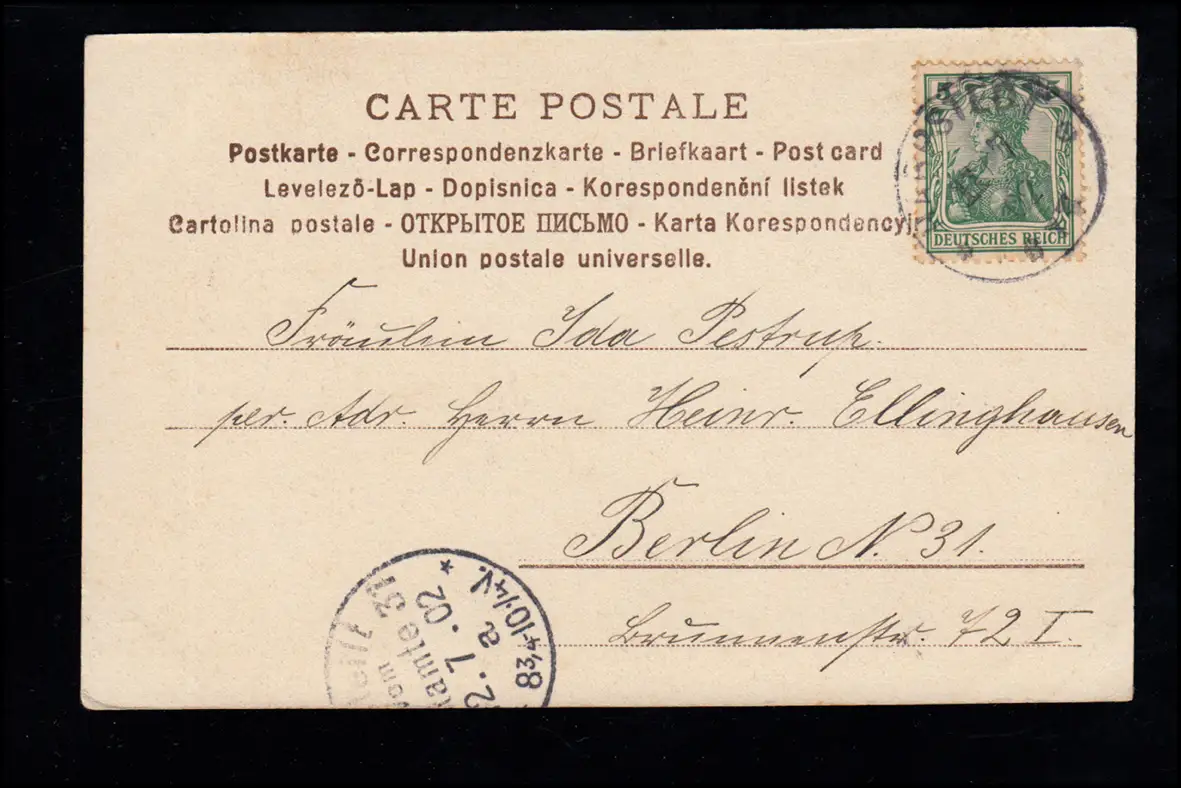 CARTE POSTALE
Postkarte - Correspondenzkarte - Briefkaart - Post card
Levelező-Lap - Dopisnica - Korespondenční listek
Cartolina postale - ОТКРЫТОЕ ПИСЬМО - Karta Korespondencyj
Union postale universelle.
5
DEUTSCHES REICH
Fräulein Ida Pestrup.
per. Adr. Herrn Heinr. Ellinghausen
Berlin N. 31.
Brunnenstr. 72 I.
vom
tamte 31
2. 7. 02 *
a.
8¾-10¼V.